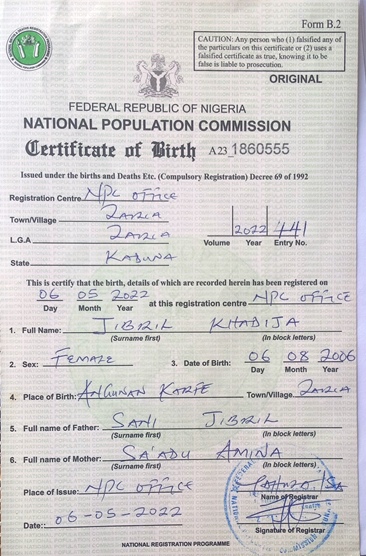 Form B.2
CAUTION: Any person who (1) falsified any of
the particulars on this certificate or (2) uses a
falsified certificate as true, knowing it to be
false is liable to prosecution.
ORIGINAL
FEDERAL REPUBLIC OF NIGERIA
NATIONAL POPULATION COMMISSION
Certificate of Birth A23 1860555
Issued under the births and Deaths Etc. (Compulsory Registration) Decree 69 of 1992
Registration Centre NPC OFFICE
Town/Village ZARIA
L.G.A ZARIA
2022 441
Volume Year Entry No.
State KADUNA
This is certify that the birth, details of which are recorded herein has been registered on
06 05 2022 at this registration centre NPC OFFICE
Day Month Year
1. Full Name: JIBRIL KHADIJA
(Surname first) (In block letters)
2. Sex: FEMALE 3. Date of Birth: 06 08 2006
Day Month Year
4. Place of Birth: ANGUNAN KARFE Town/Village ZARIA
5. Full name of Father: SANI JIBRIL
(Surname first) (In block letters)
6. Full name of Mother: SA'ADU AMINA
(Surname first) (In block letters)
Place of Issue: NPC OFFICE
Name of Registrar
Date: 06-05-2022
Signature of Registrar
NATIONAL REGISTRATION PROGRAMME